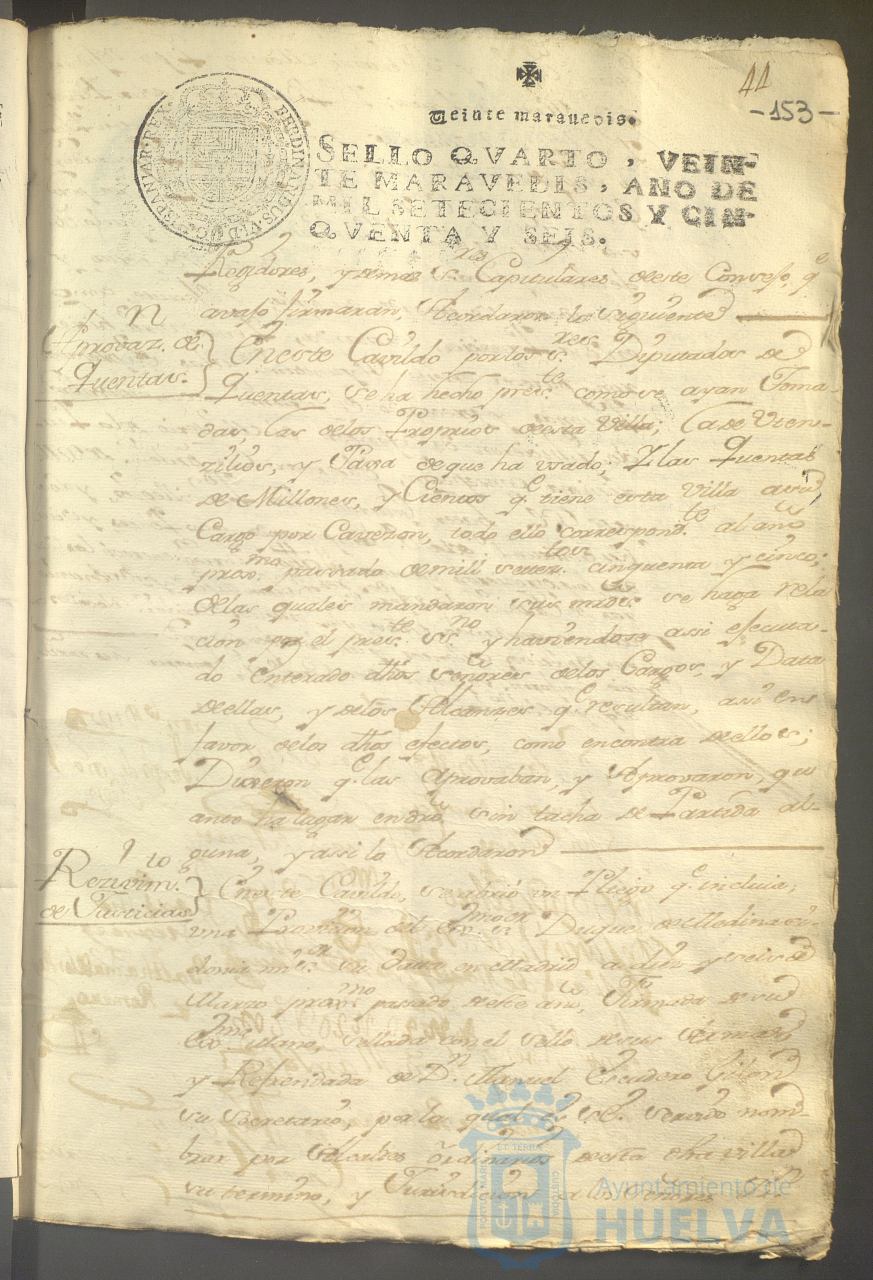 44
-153-
Veinte maravedis.
SELLO QVARTO, VEIN-
TE MARAVEDIS, AÑO DE
MIL SETECIENTOS Y CIN-
QVENTA Y SEIS.
FERDINANDUS VI D.G. HISPANIAR. REX
Regidores, y demas s.res Capitulares deste Consejo, q.e
avajo firmaran, Acordaron lo siguiente
Aprovaz.n de
Quentas.
En este Cavildo por los s.res Diputados de
Quentas, se ha hecho pres.te como se ayan Toma-
das, las delos Proprios desta Villa; La de Vten-
zilios, y Paxa de que ha vsado; Y las Quentas
de Millones, y Cientos q.e tiene esta Villa a su
Cargo por Cavezon, todo ello correspond.te al año
prox.mo passado de mill setez.tos cinquenta y cinco;
delas quales mandaron sus mrds se haga rela
cion por el pres.te s.no y haviendose assi efecuta-
do enterado dhos señores delos Cargos, y Data
de ellas, y delos Alcanzes q.e resultan, assi en
favor delos dhos efectos, como en contra de ellos;
Dixeron q.e las Aprovaban, y Aprovaron, qu
anto ha lugar en dro, sin tacha de Partida al-
guna, y assi lo Acordaron
Rezivim.to
de Justicias
En este Cavildo, se abrió un Pliego q.e incluia,
una Provision del Ex.mo s.r Duque de Medina si-
donia mi s.r su data en Madrid a diez y seis de
Marzo prox.mo passado deste año, Firmada de su
Ex.a mi s.r, sellada con el sello de sus Armas,
y Refrendada de D.n Manuel Escudero Gilon
su secretario, por la qual es s.E. servido nom-
brar por Alcaldes ordinarios desta dha villa
su termino, y Jurisdicion a los señores
Ayuntamiento de
HUELVA